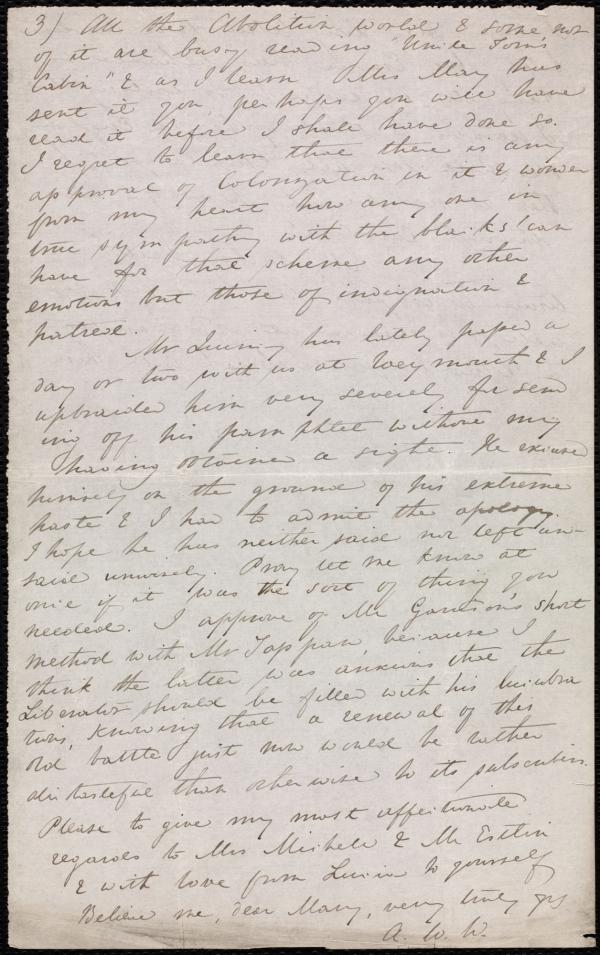 3) All the Abolition world & some not
of it are busy reading "Uncle Tom's
Cabin" & as I learn Mrs May has
sent it you perhaps you will have
read it before I shall have done so.
I regret to learn that there is any
approval of Colonization in it & wonder
from my heart how any one in
true sympathy with the blacks' can
have for that scheme any other
emotions but those of indignation &
hatred.
Mr Quincy has lately passed a
day or two with us at Weymouth & I
upbraided him very severely for send
ing off his pamphlet without my
having obtained a sight. He excused
himself on the ground of his extreme
haste & I had to admit the apology.
I hope he has neither said nor left un-
said unwisely. Pray let me know at
once if it was the sort of thing you
needed. I approve of Mr Garrison's short
method with Mr Tappan, because I
think the latter was anxious that the
Liberator should be filled with his lucubra
tions, knowing that a renewal of this
old battle just now would be rather
distasteful than otherwise to its subscribers.
Please to give my most affectionate
regards to Mrs Michell & Mr Estlin
& with love from Lucia to yourself
Believe me, dear Mary, very truly yrs
A. W. W.